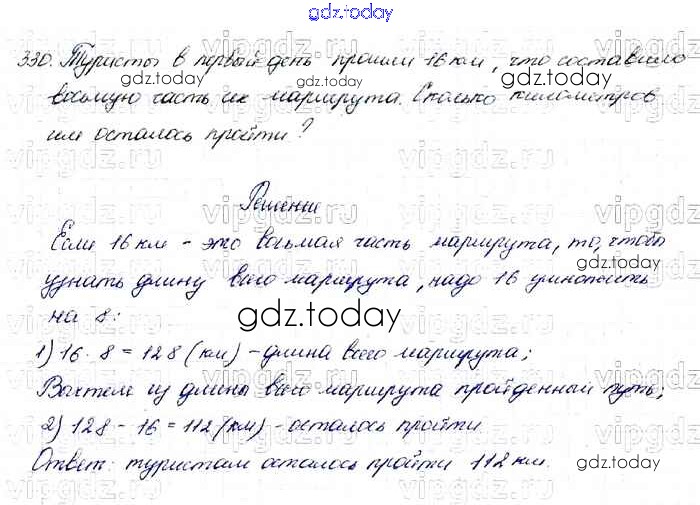 gdz.today
330. Туристы в первый день прошли 16 км, что составило
восьмую часть их маршрута. Сколько километров
им осталось пройти?
Решение
Если 16 км - это восьмая часть маршрута, то, чтобы
узнать длину всего маршрута, надо 16 умножить
на 8:
1) 16 · 8 = 128 (км) - длина всего маршрута;
Вычтем из длины всего маршрута пройденный путь;
2) 128 - 16 = 112 (км) - осталось пройти.
Ответ: туристам осталось пройти 112 км.
gdz.today
gdz.today
gdz.today
gdz.today
gdz.today
vipgdz.ru